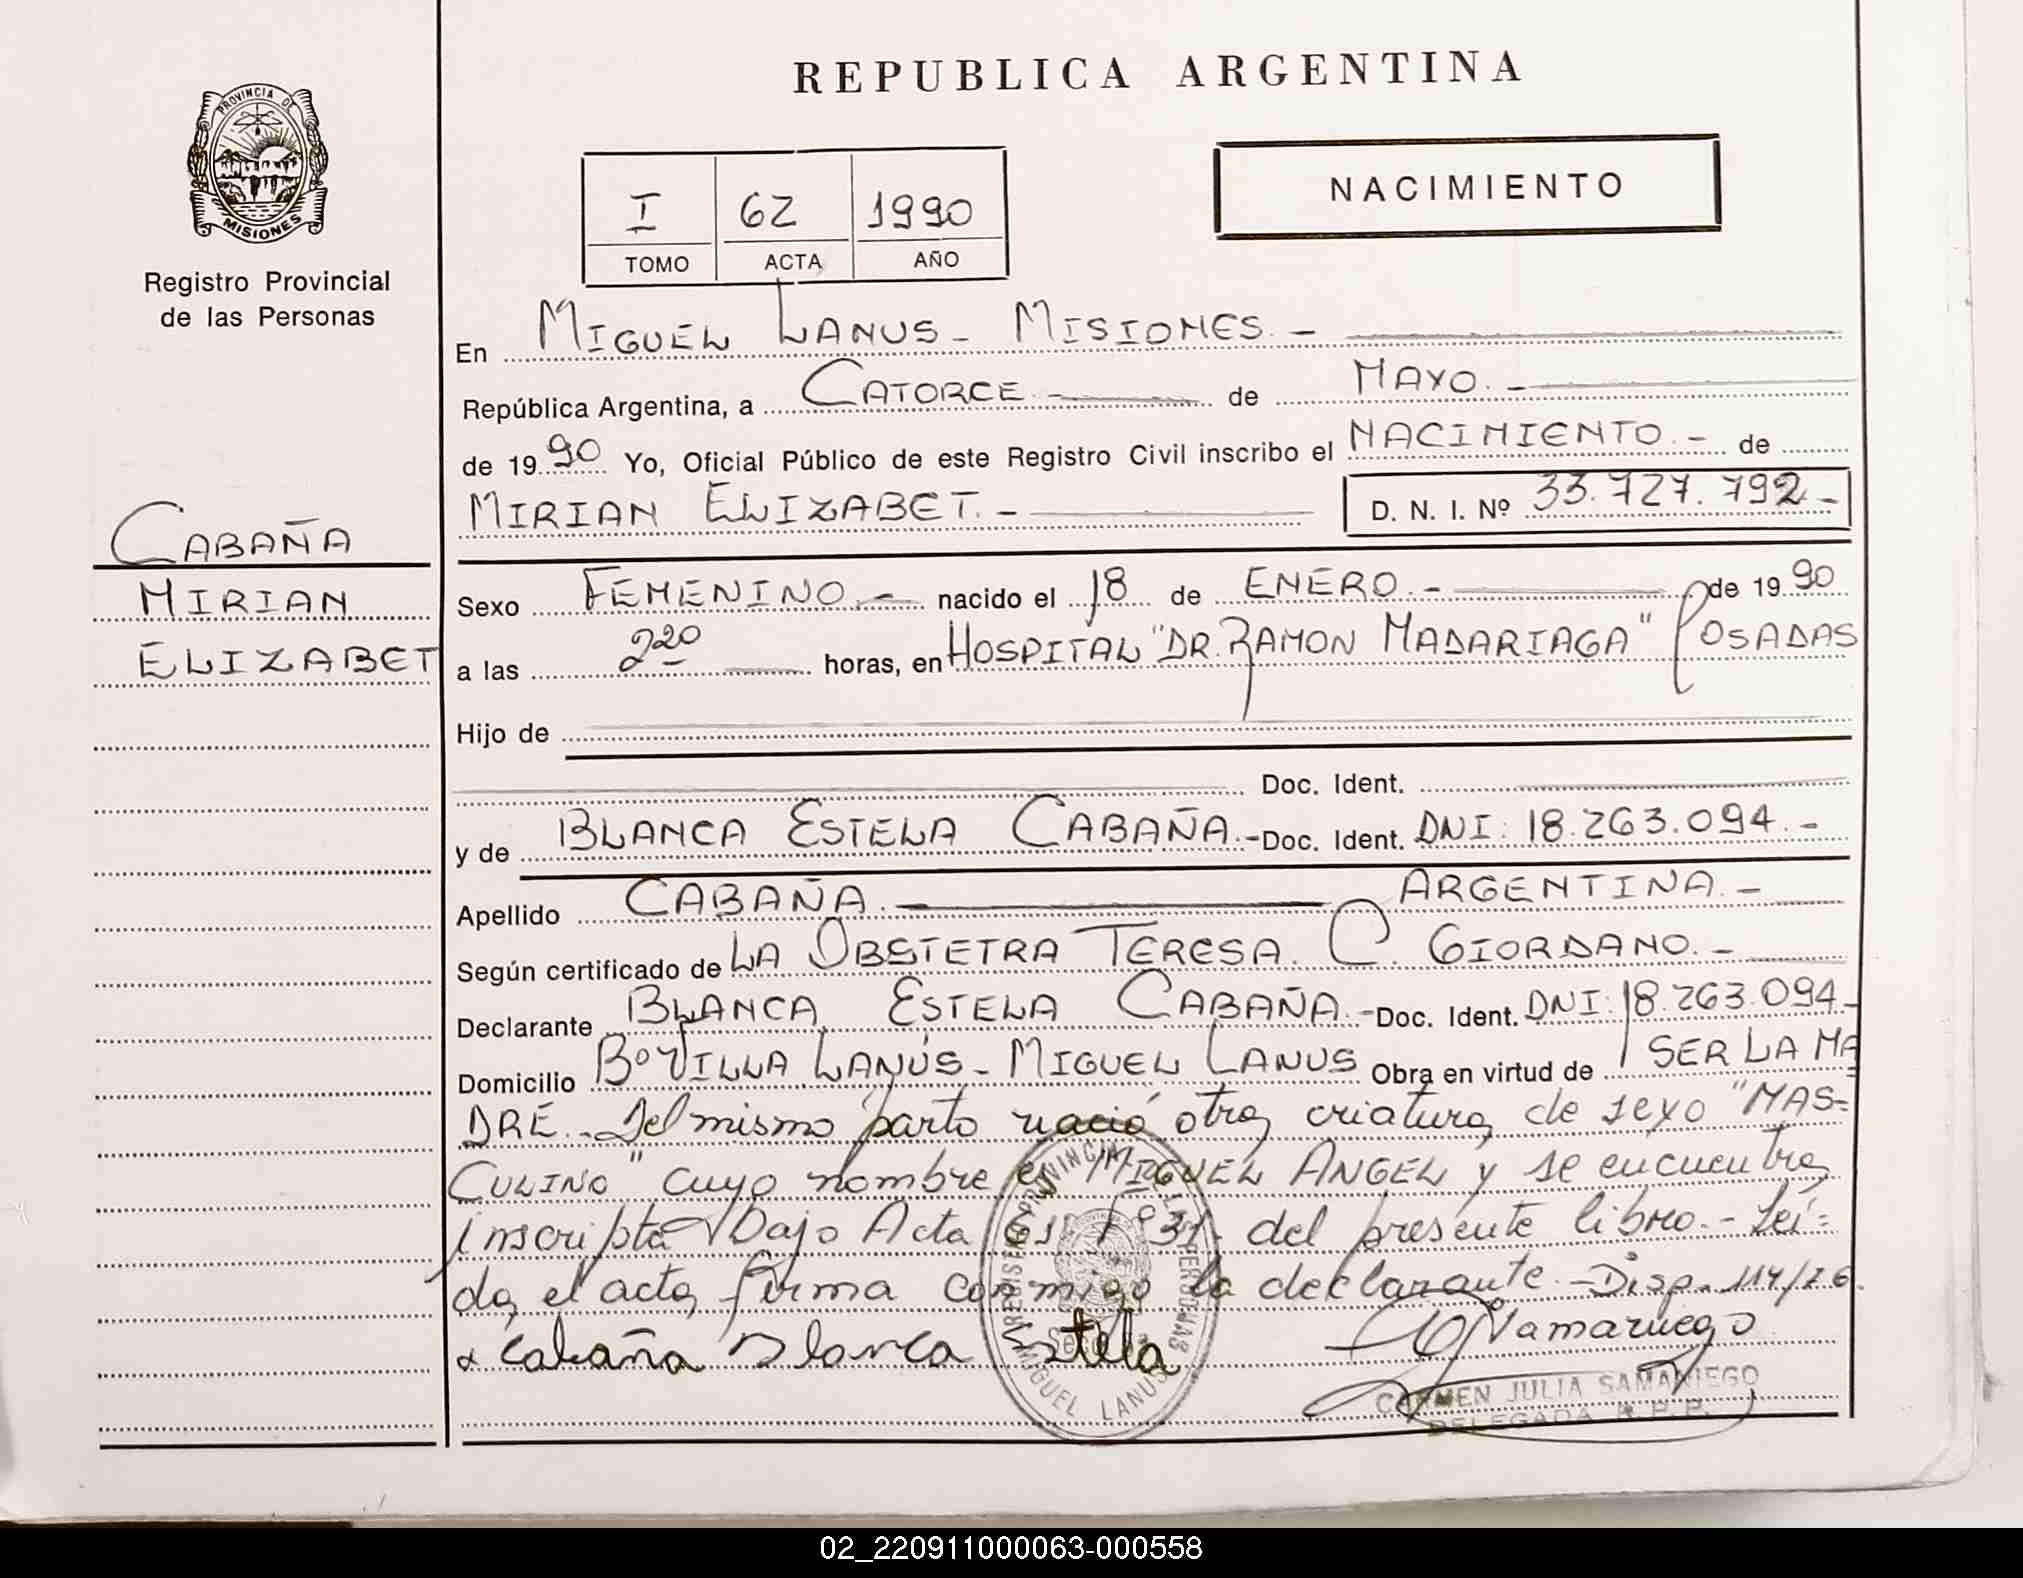 REPUBLICA ARGENTINA
PROVINCIA DE MISIONES
Registro Provincial
de las Personas
I 62 1990
TOMO ACTA AÑO
NACIMIENTO
En MIGUEL LANUS - MISIONES. -
República Argentina, a CATORCE. - de MAYO. -
de 1990 Yo, Oficial Público de este Registro Civil inscribo el NACIMIENTO. - de
MIRIAN ELIZABET. - D. N. I. Nº 33.727.792 -
CABAÑA
MIRIAN
ELIZABET
Sexo FEMENINO. - nacido el 18 de ENERO. - de 1990
a las 220 horas, en HOSPITAL "DR. RAMON MADARIAGA" POSADAS
Hijo de
Doc. Ident.
y de BLANCA ESTELA CABAÑA. - Doc. Ident. DNI: 18.263.094. -
Apellido CABAÑA. - ARGENTINA. -
Según certificado de LA OBSTETRA TERESA. C. GIORDANO. -
Declarante BLANCA ESTELA CABAÑA. - Doc. Ident. DNI: 18.263.094 -
Domicilio Bº VILLA LANÚS - MIGUEL LANUS Obra en virtud de SER LA MA
DRE. - Del mismo parto nació otra criatura de sexo "MAS=
CULINO" cuyo nombre es MIGUEL ANGEL y se encuentra
inscripta bajo Acta 61 Fº 31. del presente libro. - Leí=
da el acta firma conmigo la declarante. - Disp.
Cabaña Blanca Estela
REGISTRO PROVINCIAL DE LAS PERSONAS
MIGUEL LANUS
CARMEN JULIA SAMANIEGO
DELEGADA R. P. P.
02_220911000063-000558